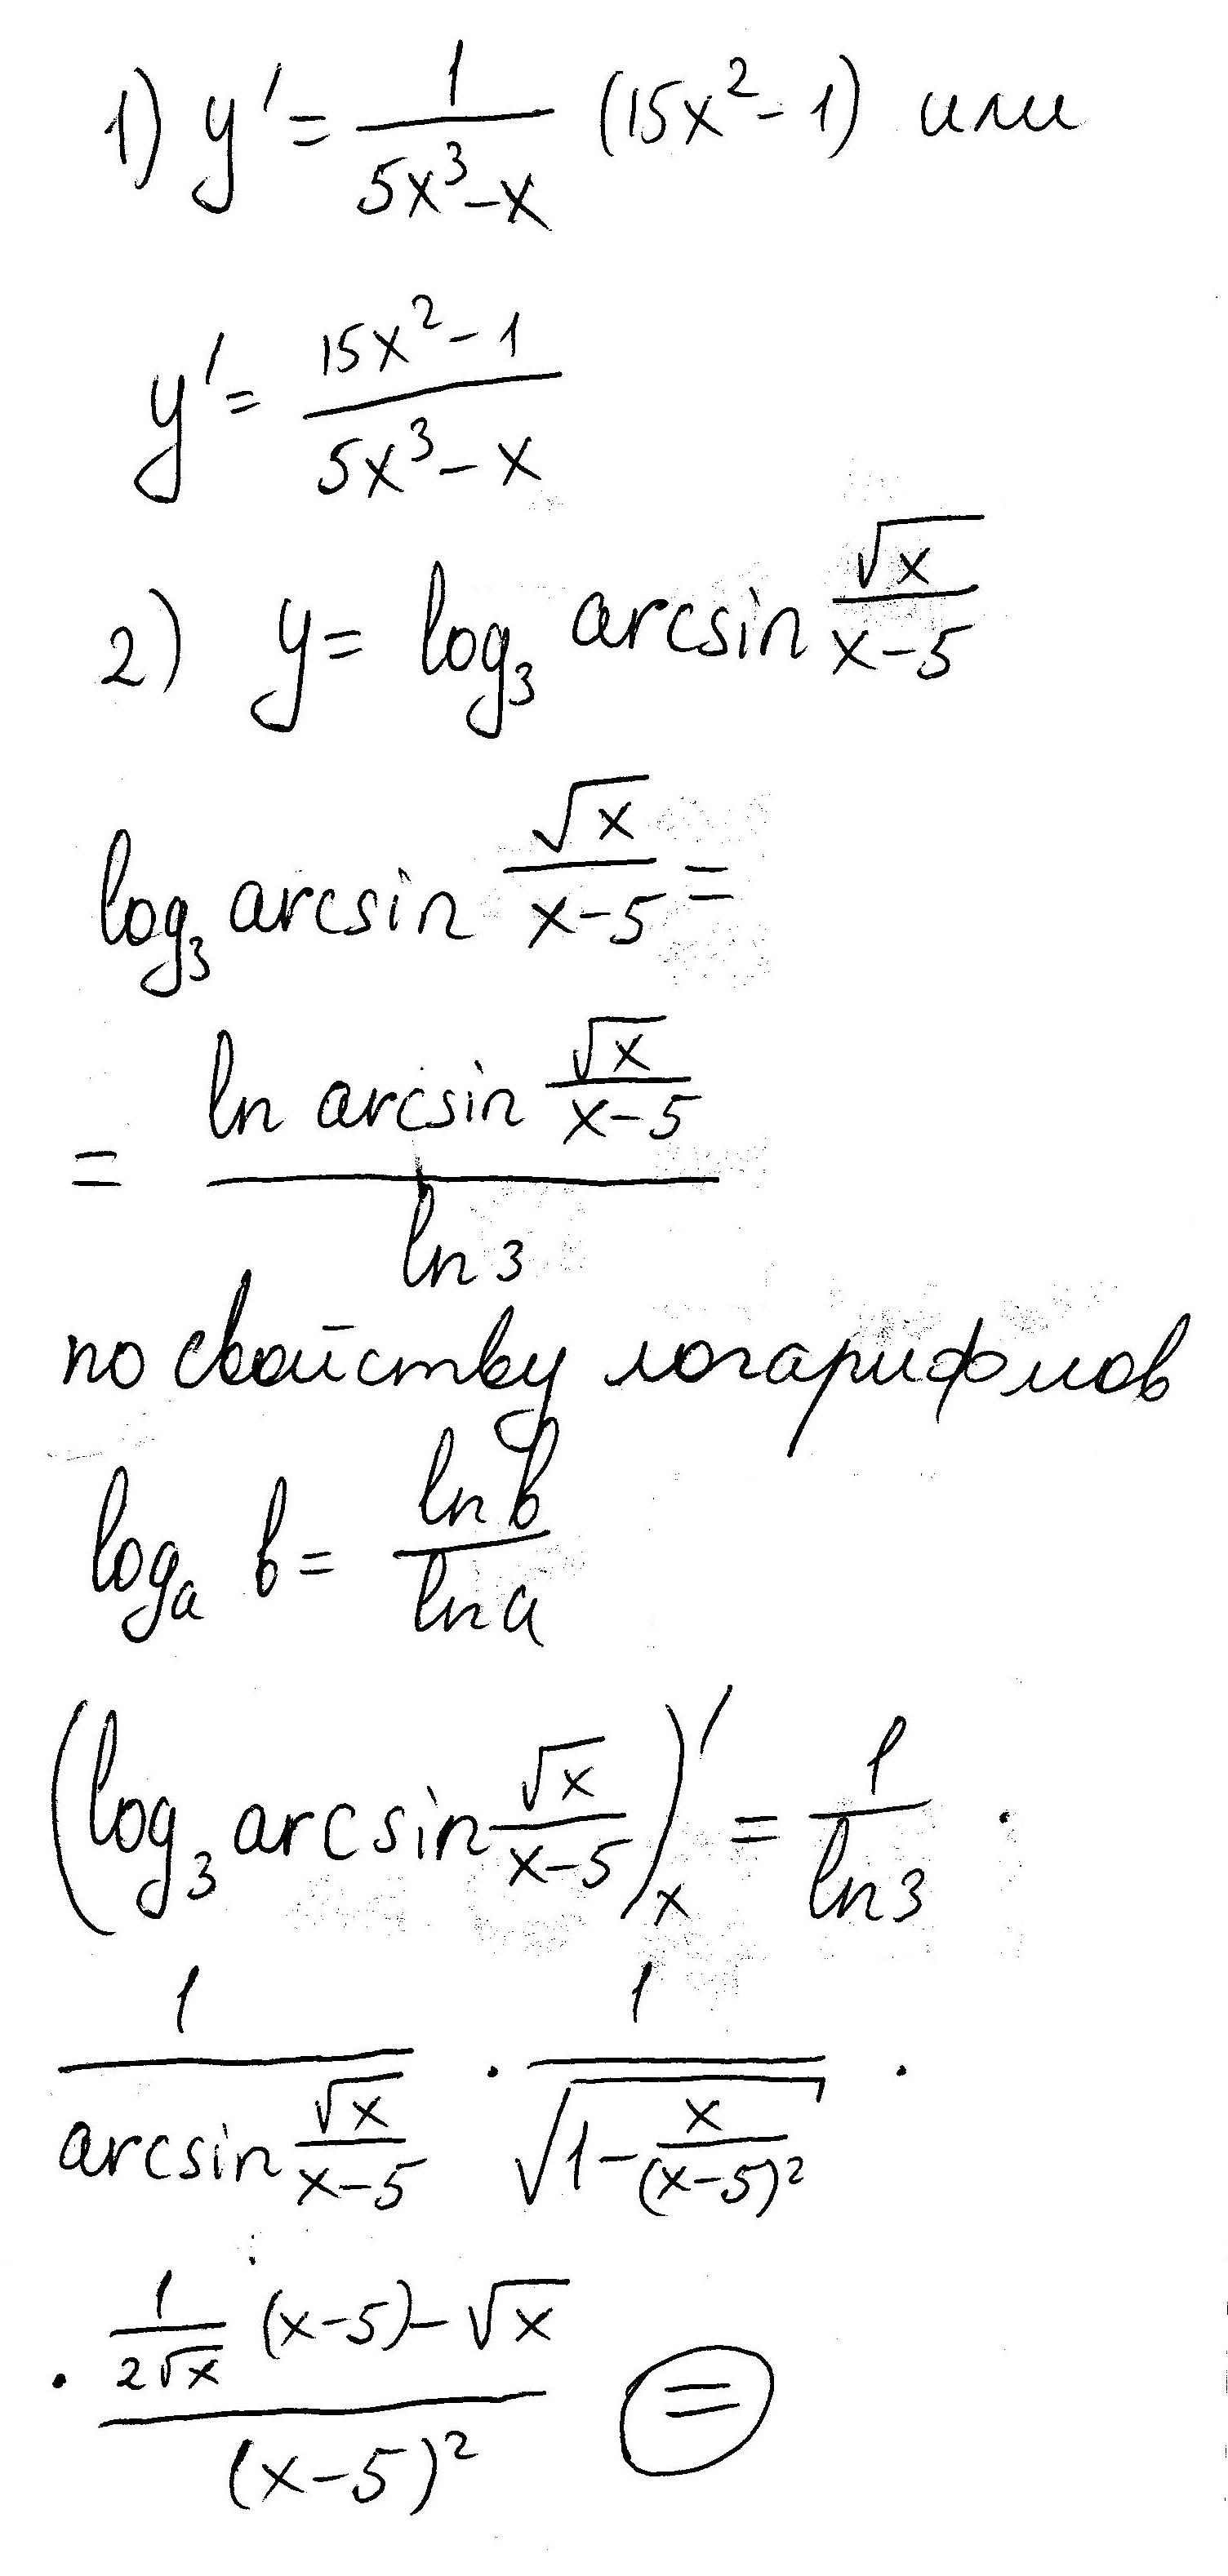 1) y' = 1/(5x³-x) (15x²-1) или
y' = (15x²-1)/(5x³-x)
2) y = log₃ arcsin √x/(x-5)
log₃ arcsin √x/(x-5) =
= (ln arcsin √x/(x-5))/(ln 3)
по свойству логарифмов
logₐ b = ln b/ln a
(log₃ arcsin √x/(x-5))'ₓ = 1/ln 3 ·
1/(arcsin √x/(x-5)) · 1/√(1-x/(x-5)²) ·
· (1/(2√x) (x-5)-√x)/(x-5)² =